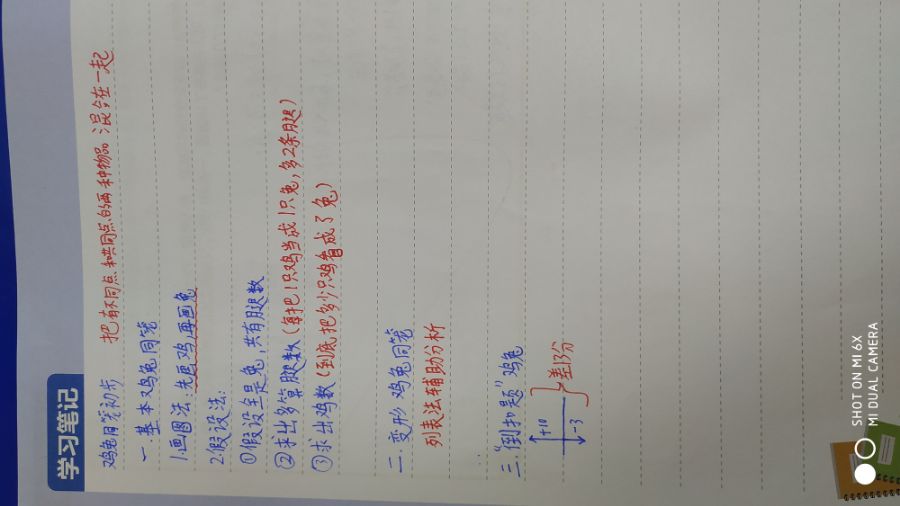 学习笔记
鸡兔同笼初步 把有不同点和共同点的两种物品混合在一起
一 基本鸡兔同笼
1.画图法:先画鸡,再画兔
2.假设法:
①假设全是兔,共有腿数
②求出多算腿数(每把1只鸡当成1只兔,多2条腿)
③求出鸡数(到底把多少只鸡看成了兔)
二. 变形鸡兔同笼
列表法辅助分析
三"倒扣题"鸡兔
+10
-3
差13分
SHOT ON MI 6X
MI DUAL CAMERA